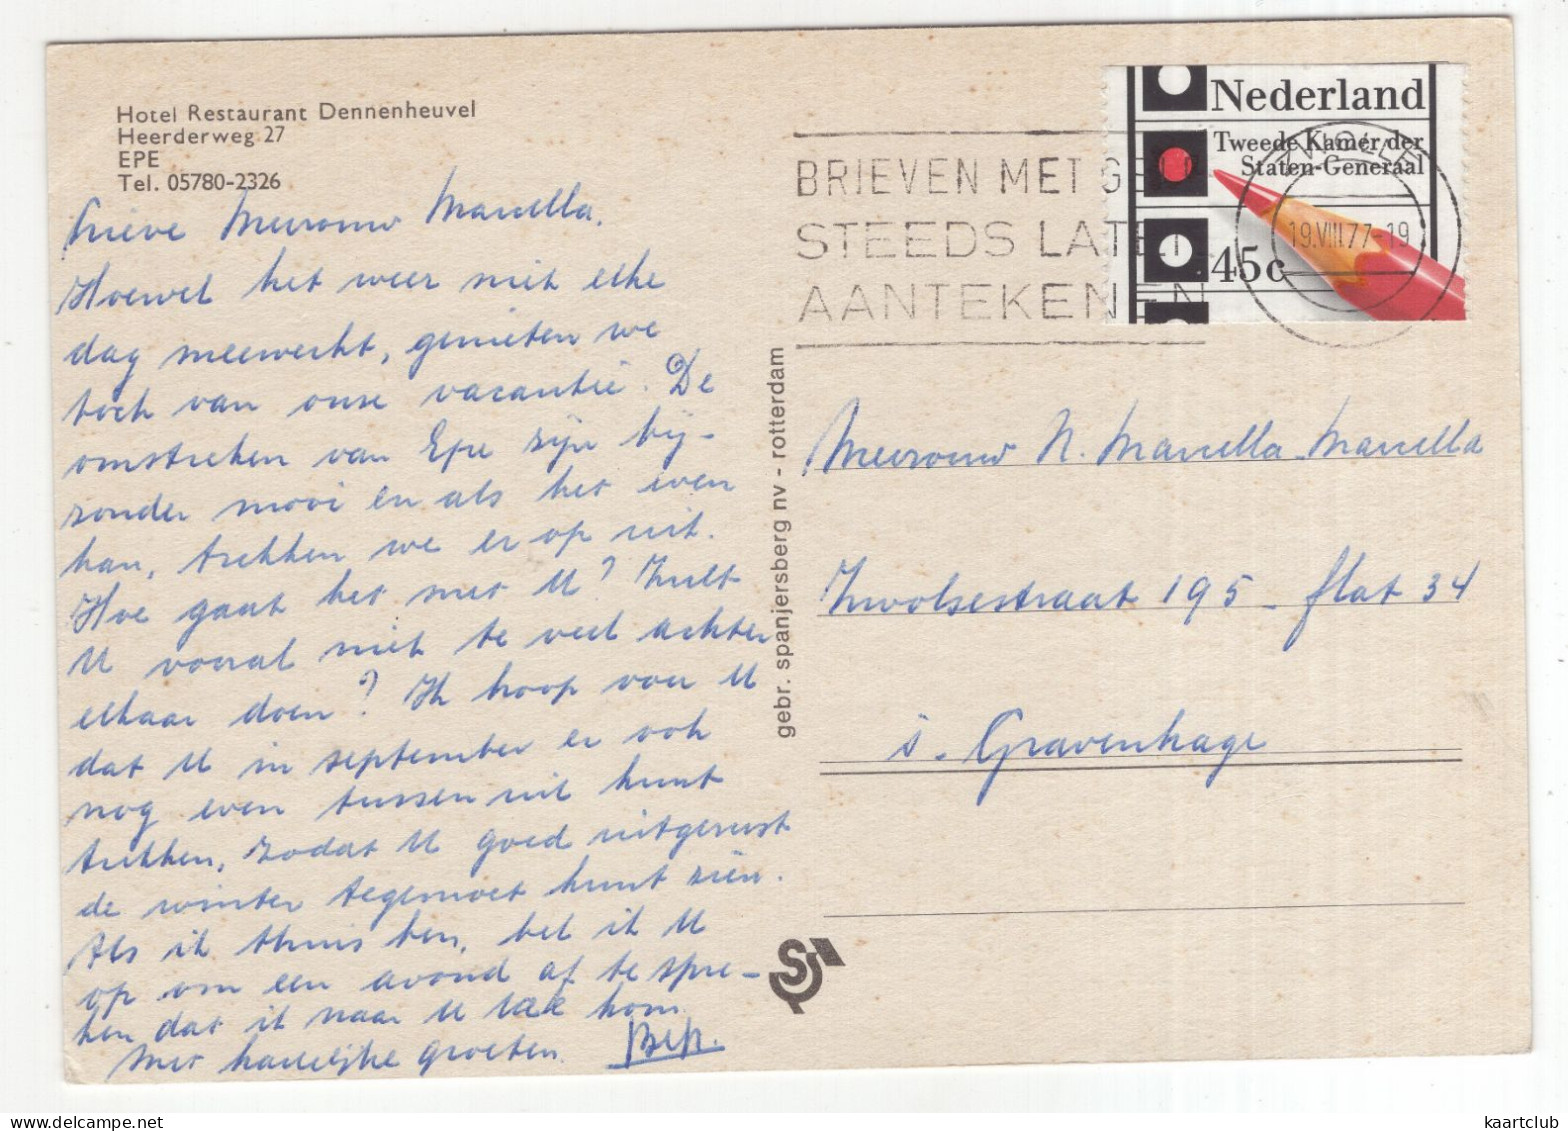 Hotel Restaurant Dennenheuvel
Heerderweg 27
EPE
Tel. 05780-2326
Lieve Mevrouw Marcella.
Hoewel het weer niet elke
dag meewerkt, genieten we
toch van onze vacantie. De
omstreken van Epe zijn bij-
zonder mooi en als het even
kan, trekken we er op uit.
Hoe gaat het met U? Zult
U vooral niet te veel achter
elkaar doen? Ik hoop voor U
dat U in september er ook
nog even tussen uit kunt
trekken, zodat U goed uitgerust
de winter tegemoet kunt zien.
Als ik thuis ben, bel ik U
op om een avond af te spre-
ken dat ik naar U toe kom.
Met hartelijke groeten. Bep.
gebr. spanjersberg nv - rotterdam
BRIEVEN MET GELD
STEEDS LATEN
AANTEKENEN
Nederland
Tweede Kamer der
Staten-Generaal
45c
ZWOLLE
19.VIII.77-19
Mevrouw N. Marcella-Marcella
Zwolsestraat 195 - flat 34
's-Gravenhage
S
kaartclub